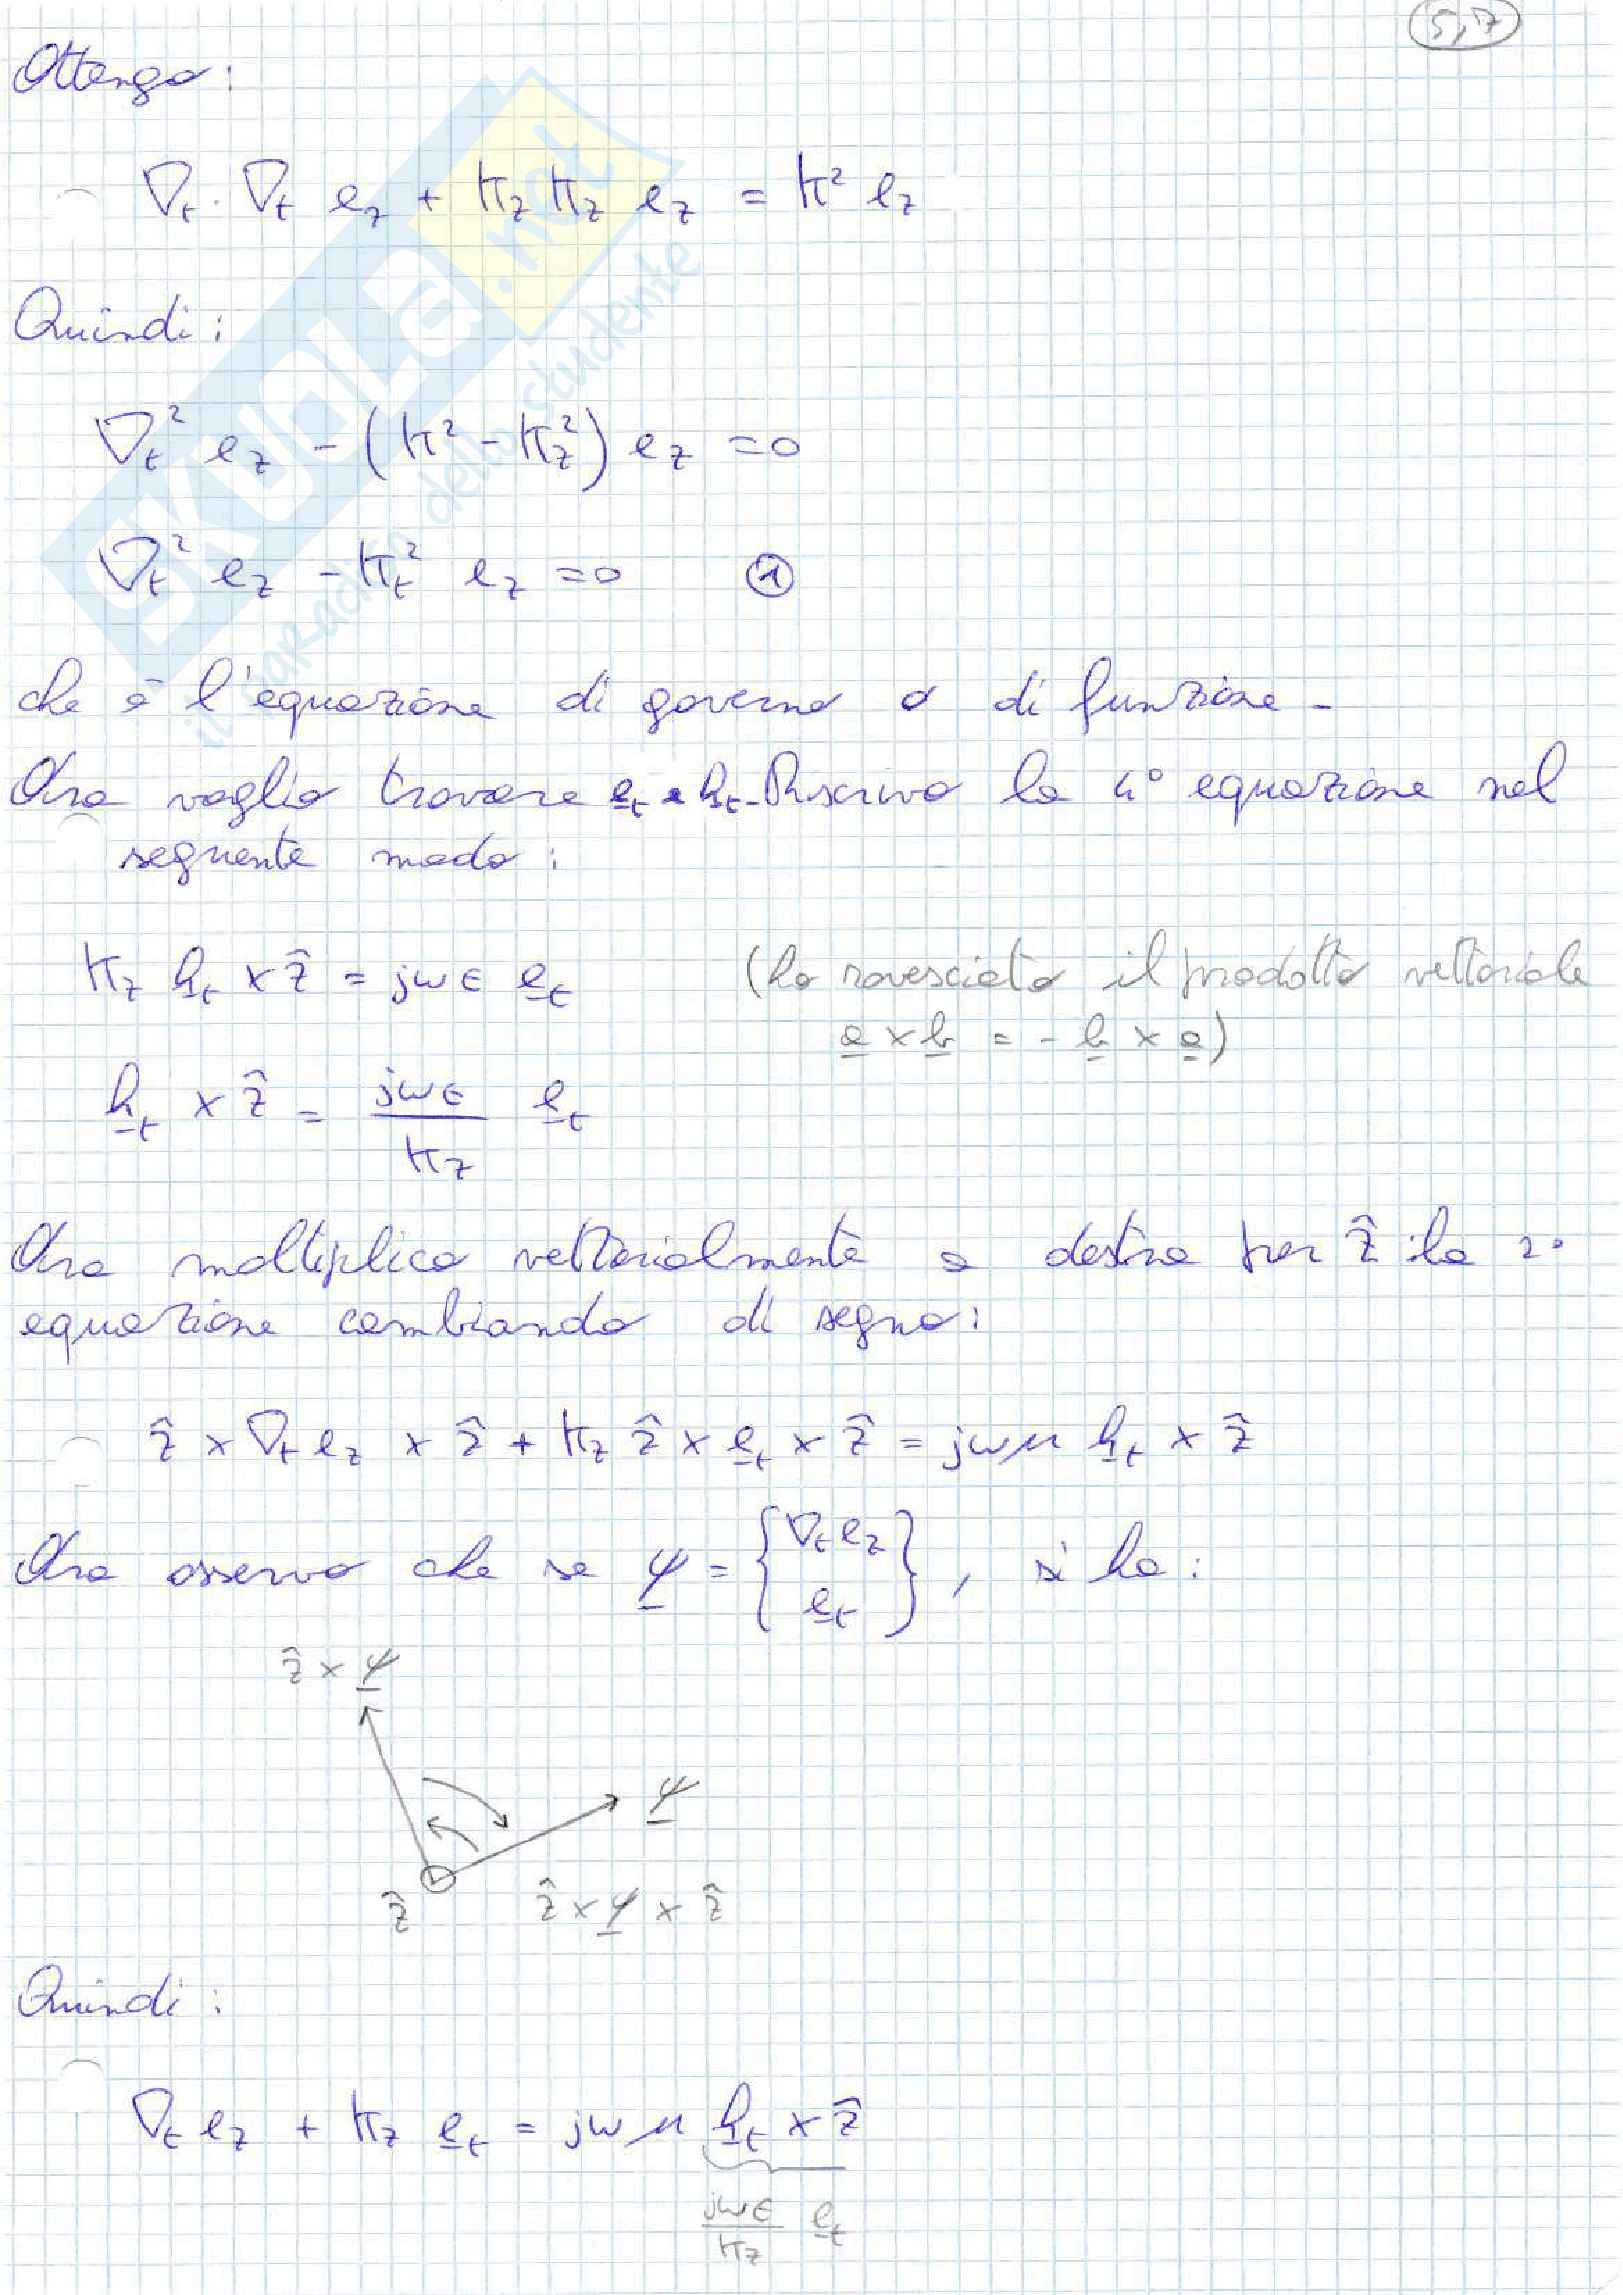 5,7
Ottengo:
∇t · ∇t ez + kz kz ez = k² ez
Quindi:
∇t² ez - (k² - kz²) ez = 0
∇t² ez - kt² ez = 0 ①
che è l'equazione di governo o di funzione -
Ora voglio trovare et e ht - Riscrivo la 4° equazione nel
seguente modo:
kz ht × ẑ = jωϵ et (ho rovesciato il prodotto vettoriale
a × b = - b × a)
ht × ẑ = jωϵ / kz et
Ora moltiplico vettorialmente a destra per ẑ la 2°
equazione cambiando di segno:
ẑ × ∇t ez × ẑ + kz ẑ × et × ẑ = jωμ ht × ẑ
Ora osservo che se ψ = { ∇t ez
et } , si ha:
ẑ × ψ
ψ
ẑ
ẑ × ψ × ẑ
Quindi:
∇t ez + kz et = jωμ ht × ẑ
jωϵ / kz et
SKUOLA.net
il paradiso dello studente